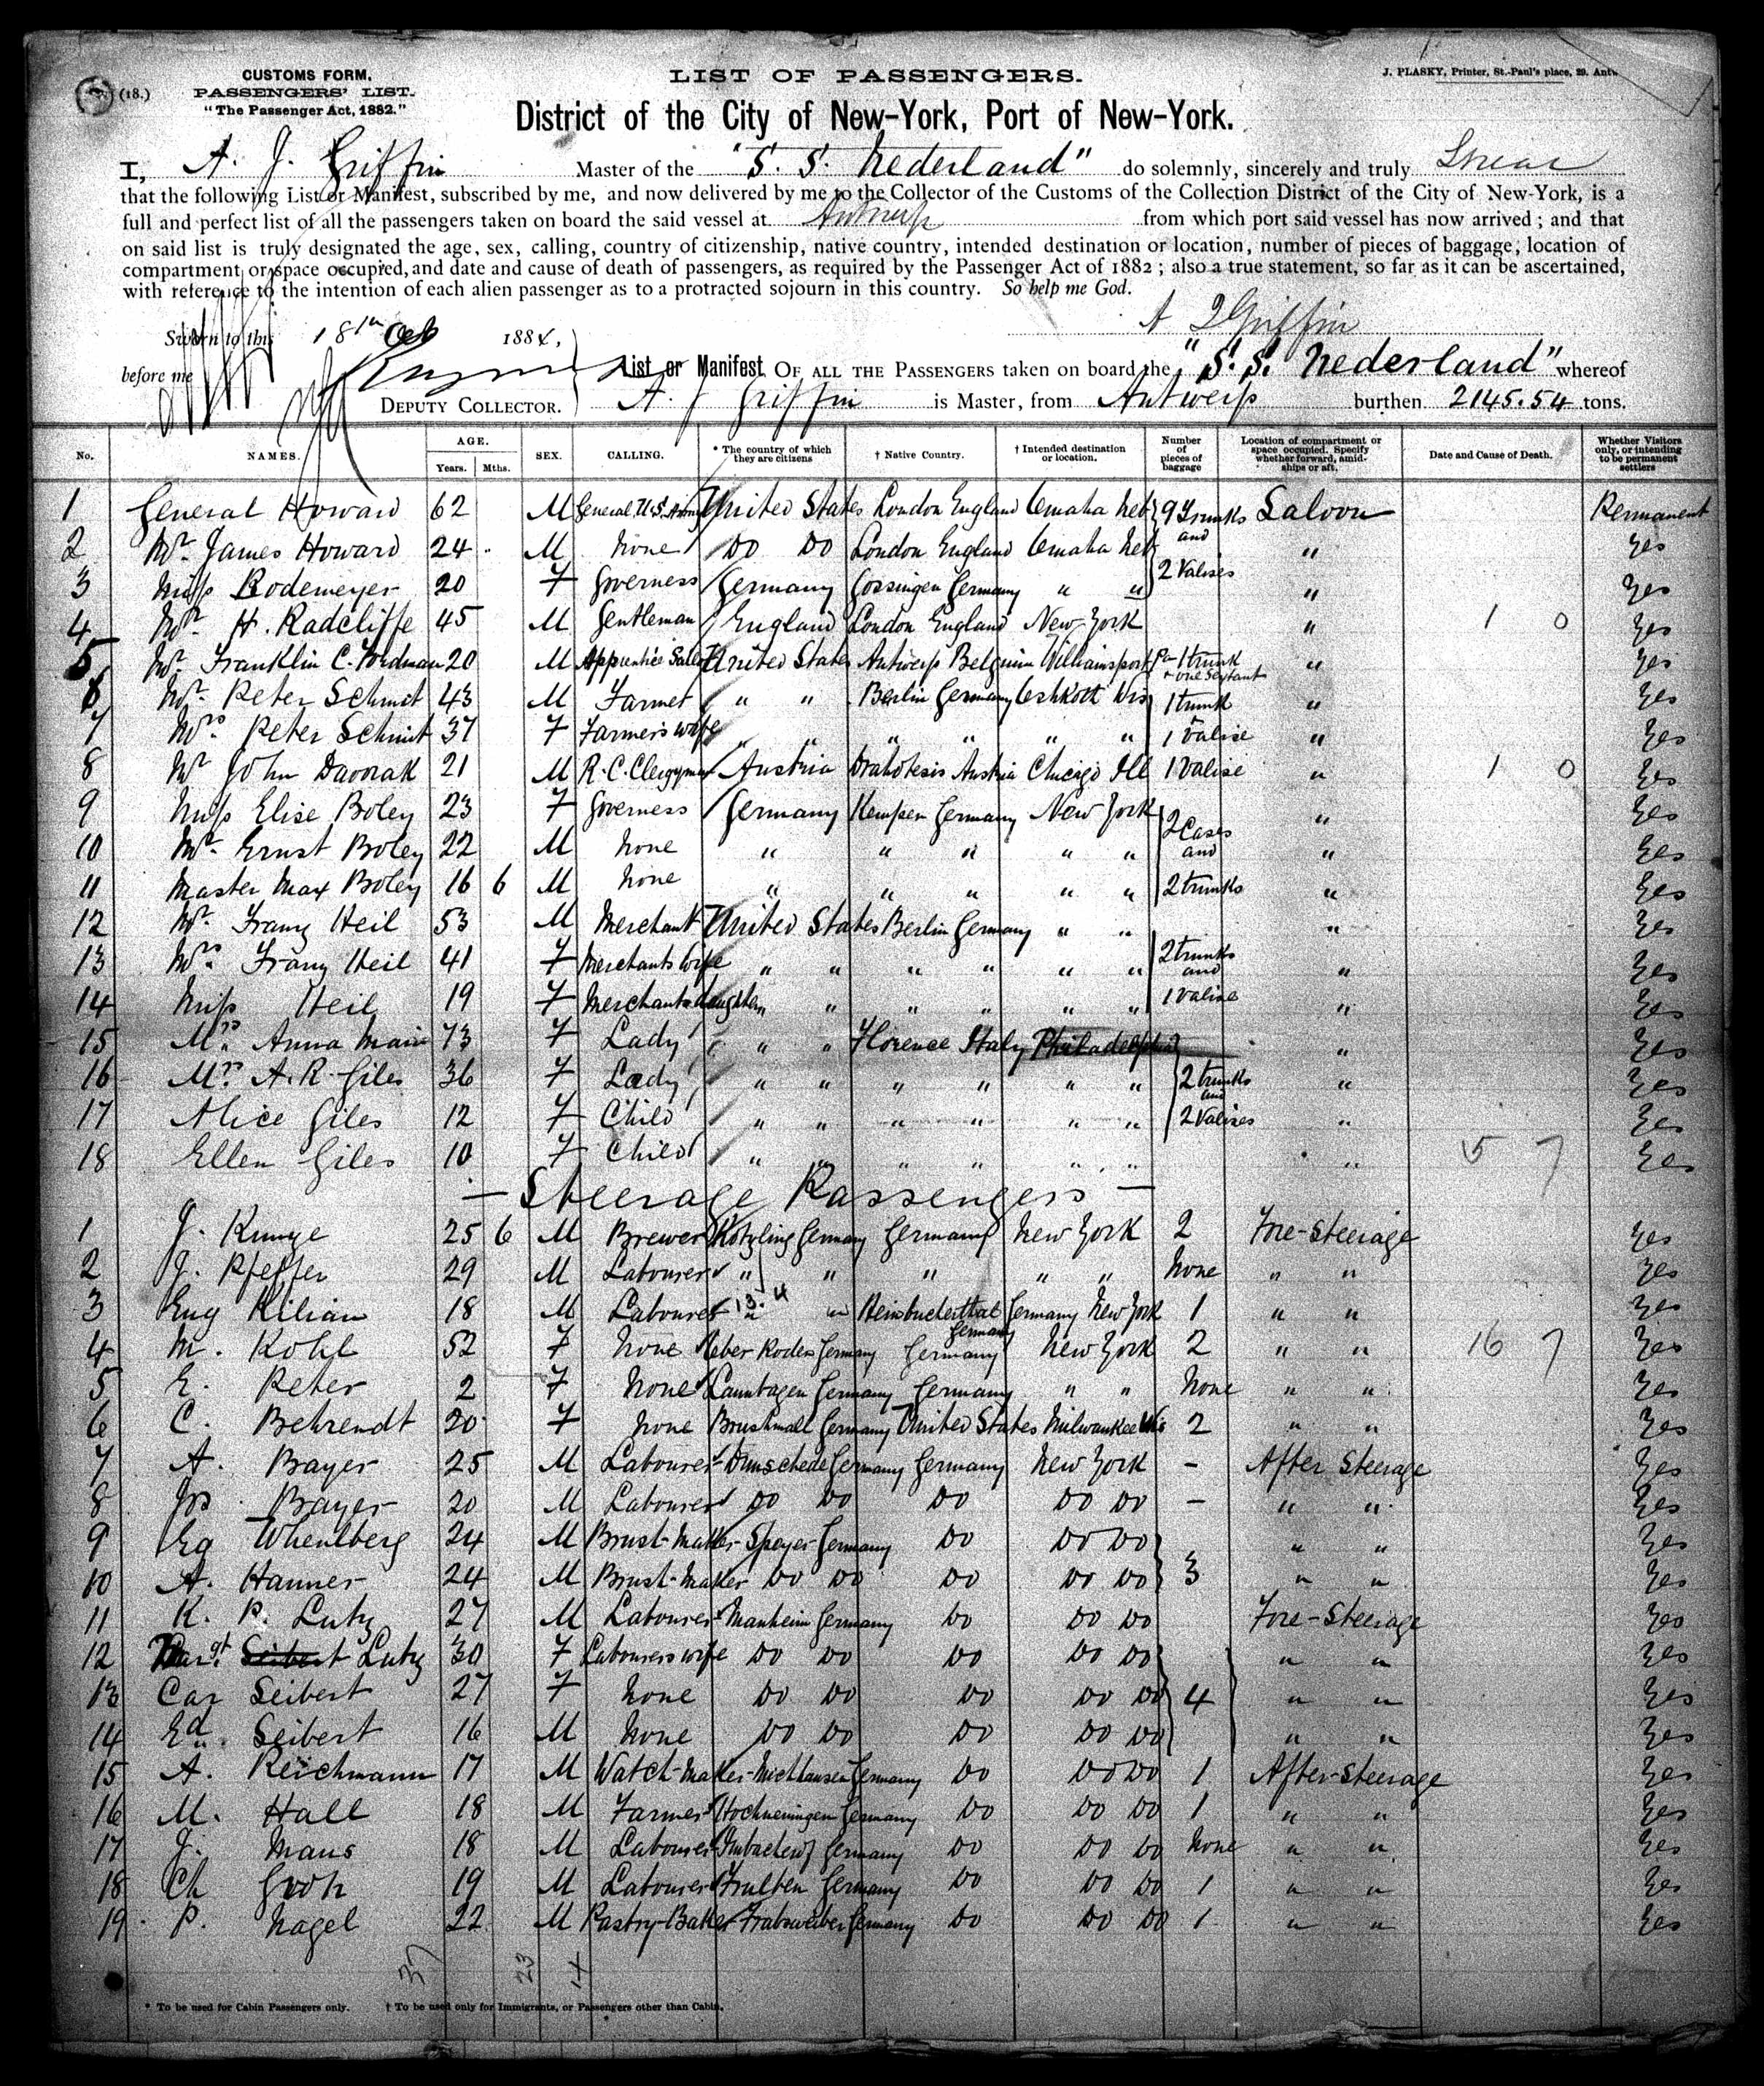 (18.)
CUSTOMS FORM.
PASSENGERS' LIST.
"The Passenger Act, 1882."
LIST OF PASSENGERS.
J. PLASKY, Printer, St.-Paul's place, 29. Antw
District of the City of New-York, Port of New-York.
I, A. J. Griffin Master of the "S. S. Nederland" do solemnly, sincerely and truly Swear
that the following List or Manifest, subscribed by me, and now delivered by me to the Collector of the Customs of the Collection District of the City of New-York, is a
full and perfect list of all the passengers taken on board the said vessel at Antwerp from which port said vessel has now arrived; and that
on said list is truly designated the age, sex, calling, country of citizenship, native country, intended destination or location, number of pieces of baggage, location of
compartment or space occupied, and date and cause of death of passengers, as required by the Passenger Act of 1882; also a true statement, so far as it can be ascertained,
with reference to the intention of each alien passenger as to a protracted sojourn in this country. So help me God.
A J Griffin
Sworn to this 18th Oct 1884,
before me
DEPUTY COLLECTOR.
List or Manifest OF ALL THE PASSENGERS taken on board the "S. S. Nederland" whereof
A. J Griffin is Master, from Antwerp burthen 2145.54 tons.
No. NAMES. AGE. Years. Mths. SEX. CALLING. * The country of which they are citizens † Native Country. † Intended destination or location. Number of pieces of baggage Location of compartment or space occupied. Specify whether forward, amidships or aft. Date and Cause of Death. Whether Visitors only, or intending to be permanent settlers
1 General Howard 62 M General U.S. Army United States London England Omaha Neb 9 Trunks Saloon Permanent
2 Mr. James Howard 24 M None Do Do London England Omaha Neb and " Yes
3 Miss Bodemeyer 20 F Governess Germany Gossingen Germany " " 2 Valises " Yes
4 Mr. H. Radcliffe 45 M Gentleman England London England New York " 1 0 Yes
5 Mr. Franklin C. 20 M Apprentice Sailor United States Antwerp Belgium Williamsport Pa 1 trunk + one Sextant " Yes
6 Mr. Peter Schmit 43 M Farmer " " Berlin Germany Oshkosh Wis 1 trunk " Yes
7 Mrs. Peter Schmit 37 F Farmer's wife " " " " " " 1 Valise " Yes
8 Mr John Davorak 21 M R.C. Clergyman Austria Austria Chicago Ill 1 Valise " 1 0 Yes
9 Miss Elise Boley 23 F Governess Germany Kempen Germany New York 2 Cases " Yes
10 Mr. Ernst Boley 22 M None " " " " " and " Yes
11 Master Max Boley 16 6 M None " " " " " 2 trunks " Yes
12 Mr. Franz Heil 53 M Merchant United States Berlin Germany " " " Yes
13 Mrs. Franz Heil 41 F Merchants Wife " " " " " " 2 trunks and " Yes
14 Miss Heil 19 F Merchants daughter " " " " " " 1 Valise " Yes
15 Mrs. Anna Main 73 F Lady " " Florence Italy Philadelphia " Yes
16 Mrs. A. R. Giles 36 F Lady " " " " " " 2 trunks and " Yes
17 Alice Giles 12 F Child " " " " " " 2 Valises " Yes
18 Ellen Giles 10 F Child " " " " " " " 5 7 Yes
— Steerage Passengers —
1 J. Kunze 25 6 M Brewer Kötzling Germany Germany New York 2 Fore-Steerage Yes
2 J. Pfeffer 29 M Labourer " " " " " None " " Yes
3 Eug Kilian 18 M Labourer 13.4 " Heinbuchenthal Germany New York 1 " " Yes
4 M. Kohl 52 F None Ober Roden Germany Germany New York 2 " " 16 7 Yes
5 E. Peter 2 F None Germany Germany " " None " " Yes
6 C. Behrendt 20 F None Germany United States Milwaukee Wis 2 " " Yes
7 A. Bayer 25 M Labourer Germany Germany New York - After Steerage Yes
8 Jos. Bayer 20 M Labourer Do Do Do Do Do - " " Yes
9 24 M Brush-Maker Speyer Germany Do Do Do " " Yes
10 A. Hanner 24 M Brush-Maker Do Do Do Do Do 3 " " Yes
11 K. P. Lutz 27 M Labourer Manheim Germany Do Do Do Fore-Steerage Yes
12 Margt. Seibert Lutz 30 F Labourers wife Do Do Do Do Do " " Yes
13 Car Seibert 27 F None Do Do Do Do Do 4 " " Yes
14 Ed. Seibert 16 M None Do Do Do Do Do " " Yes
15 A. Reichmann 17 M Watch-Maker Germany Do Do Do 1 After-Steerage Yes
16 M. Hall 18 M Farmer Germany Do Do Do 1 " " Yes
17 J. Maus 18 M Labourer Germany Do Do Do None " " Yes
18 Ch Groh 19 M Labourer Trulben Germany Do Do Do 1 " " Yes
19 P. Nagel 22 M Pastry-Baker Germany Do Do Do 1 " " Yes
37 23 14
* To be used for Cabin Passengers only. † To be used only for Immigrants, or Passengers other than Cabin.